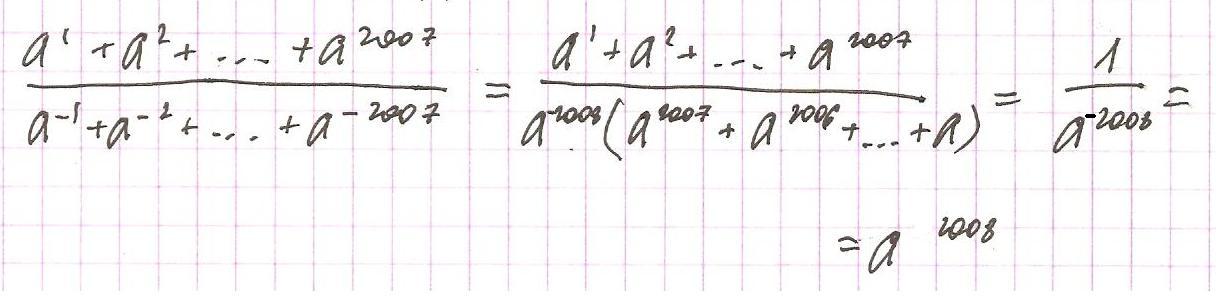 \frac{a^1 + a^2 + \ldots + a^{2007}}{a^{-1} + a^{-2} + \ldots + a^{-2007}} = \frac{a^1 + a^2 + \ldots + a^{2007}}{a^{-2008}(a^{2007} + a^{2006} + \ldots + a)} = \frac{1}{a^{-2008}} =
= a^{2008}